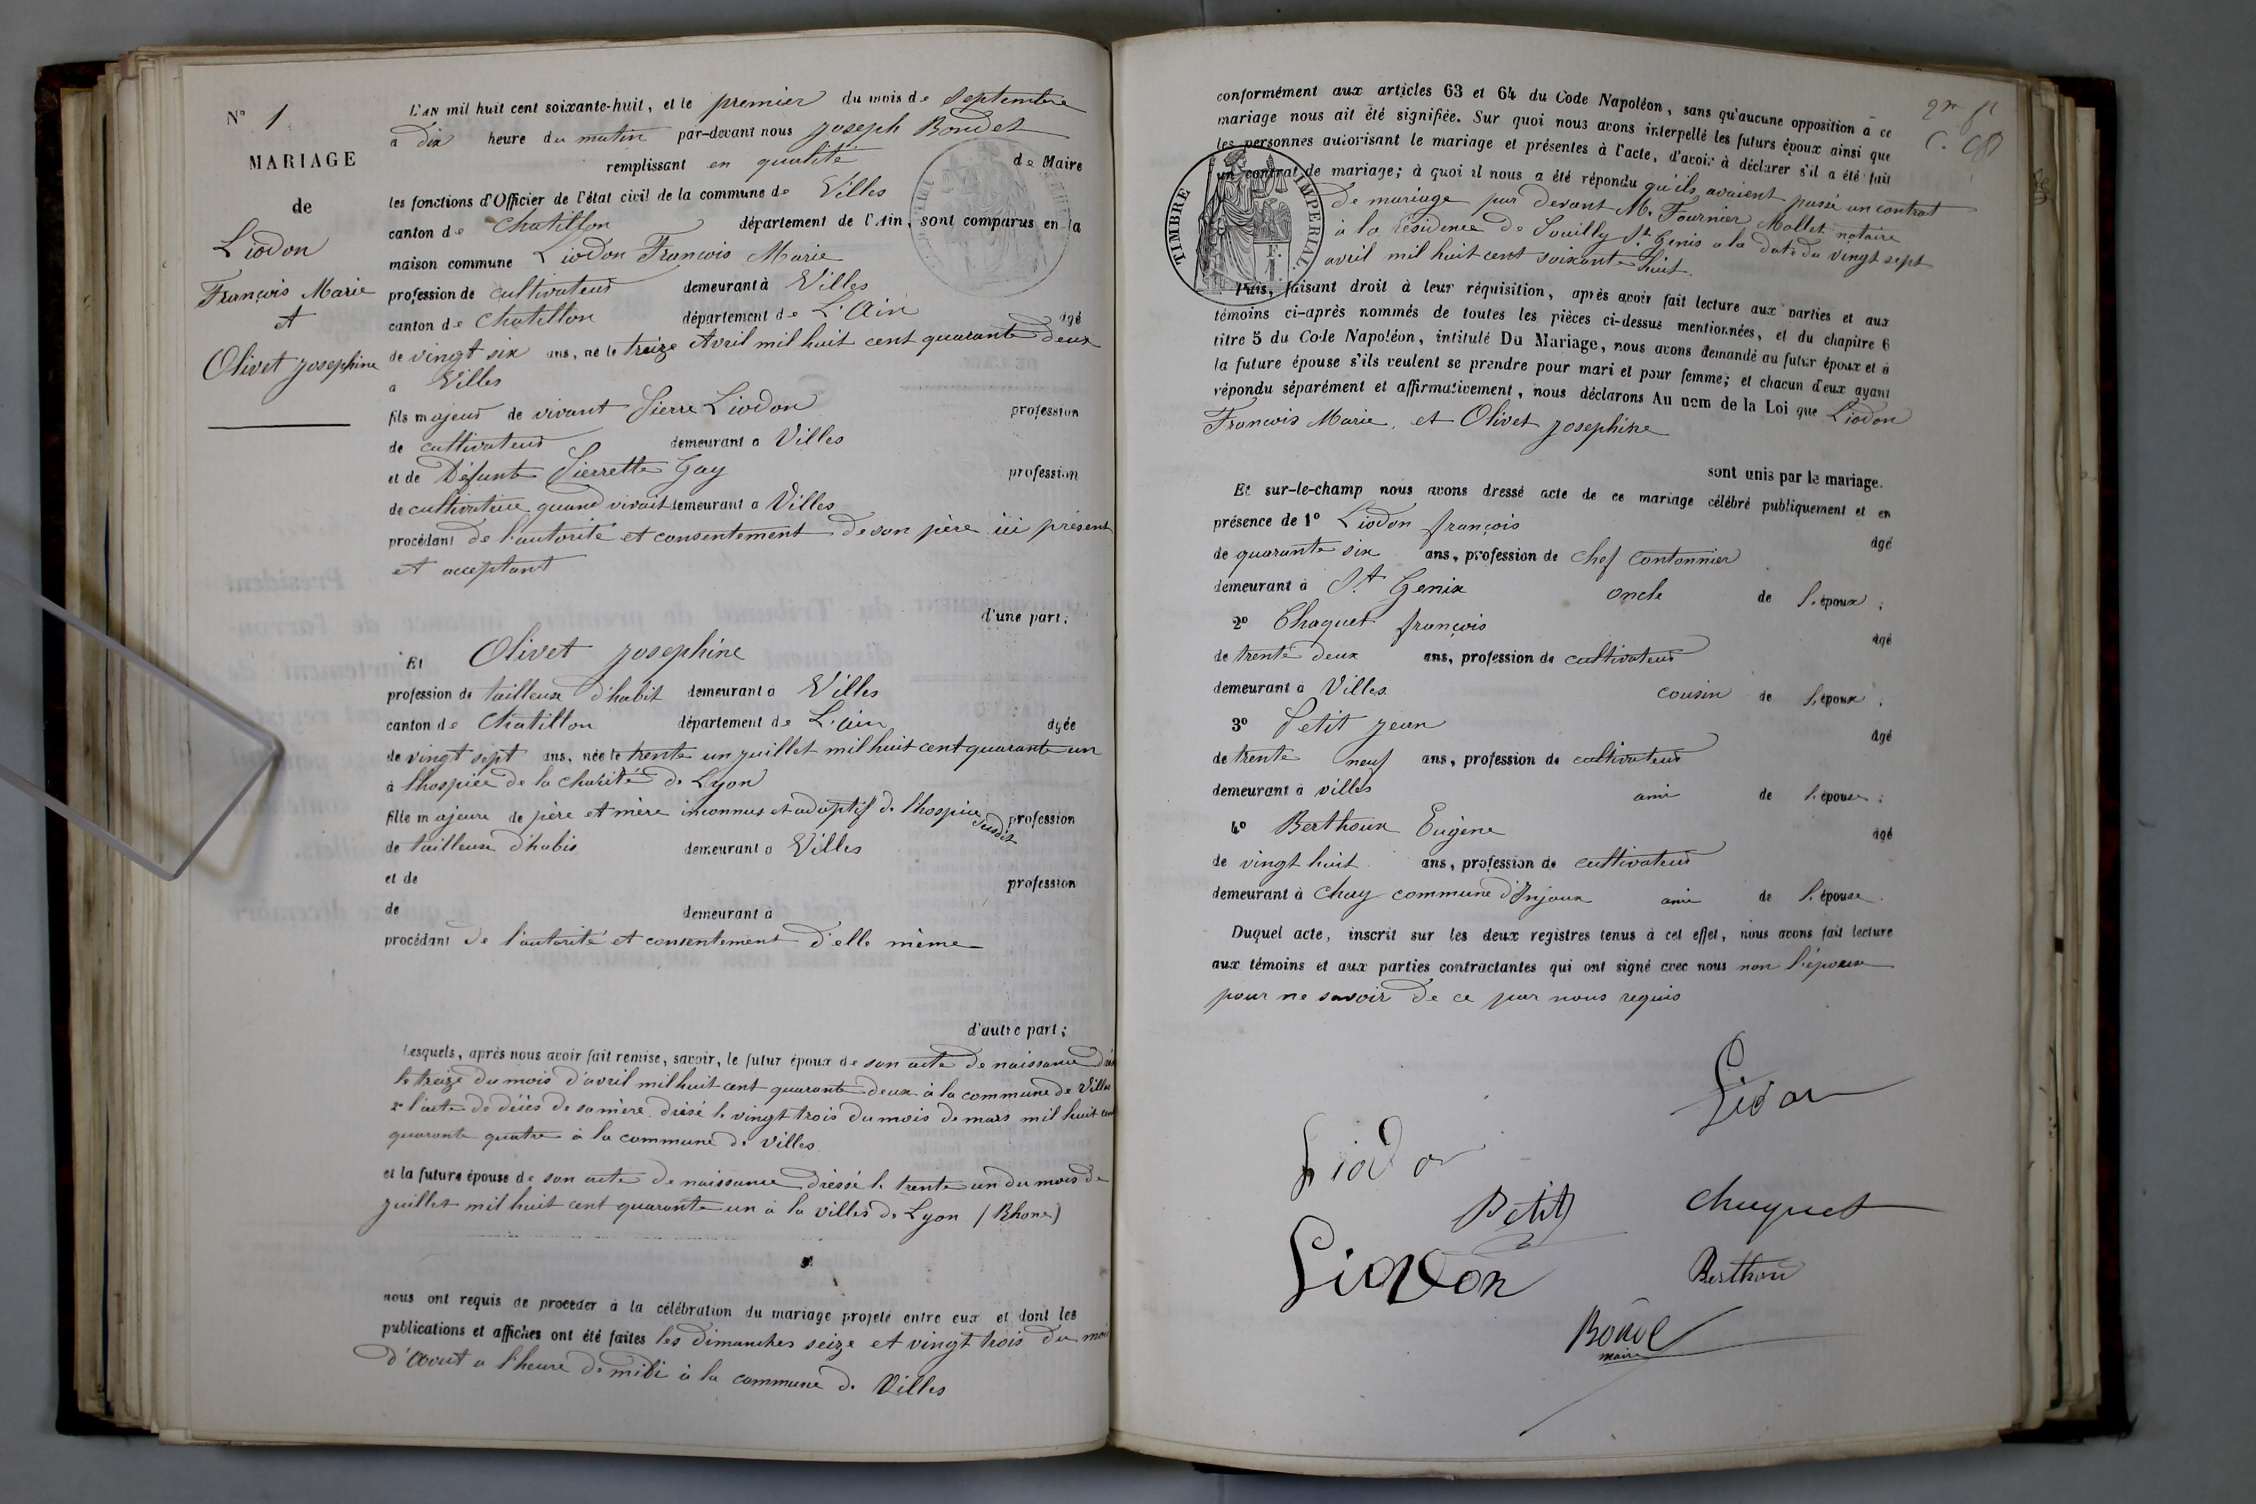 N° 1
MARIAGE
de
Liodon
François Marie
et
Olivet josephine
L'AN mil huit cent soixante-huit, et le premier du mois de Septembre
à dix heure du matin par-devant nous joseph Boudet
remplissant en qualité de Maire
les fonctions d'Officier de l'état civil de la commune de Villes
canton de Chatillon département de l'Ain, sont comparus en la
maison commune Liodon François Marie
profession de cultivateur demeurant à Villes
canton de Chatillon département de L'Ain âgé
de vingt six ans, né le treize Avril mil huit cent quarante deux
à Villes
fils majeur de vivant Pierre Liodon profession
de cultivateur demeurant à Villes
et de Défunte Pierrette Gay profession
de cultivatrice quand vivait demeurant à Villes
procédant de l'autorité et consentement de son père ici présent
et acceptant
d'une part;
Et Olivet josephine
profession de tailleuse d'habit demeurant à Villes
canton de Chatillon département de L'ain âgée
de vingt sept ans, née le trente un juillet mil huit cent quarante un
à l'hospice de la charité de Lyon
fille majeure de père et mère inconnus et adoptif de l'hospice susdit profession
de tailleuse d'habis demeurant à Villes
et de profession
de demeurant à
procédant de l'autorité et consentement d'elle même
d'autre part;
Lesquels, après nous avoir fait remise, savoir, le futur époux de son acte de naissance
le treize du mois d'avril mil huit cent quarante deux à la commune de Villes
2° l'acte de décès de sa mère dressé le vingt trois du mois de mars mil huit cent
quarante quatre à la commune de Villes
et la future épouse de son acte de naissance dressé le trente un du mois de
juillet mil huit cent quarante un à la villes de Lyon (Rhone)
nous ont requis de procéder à la célébration du mariage projeté entre eux et dont les
publications et affiches ont été faites les dimanches seize et vingt trois du mois
d'Aout a l'heure de midi à la commune de Villes
conformément aux articles 63 et 64 du Code Napoléon, sans qu'aucune opposition à ce
mariage nous ait été signifiée. Sur quoi nous avons interpellé les futurs époux ainsi que
les personnes autorisant le mariage et présentes à l'acte, d'avoir à déclarer s'il a été fait
un contrat de mariage; à quoi il nous a été répondu qu'ils avaient passé un contrat
De mariage par devant Me Fournier Mallet notaire
à la résidence de Pouilly St Genis a la date du vingt sept
avril mil huit cent soixante huit.
TIMBRE IMPERIAL.
Puis, faisant droit à leur réquisition, après avoir fait lecture aux parties et aux
témoins ci-après nommés de toutes les pièces ci-dessus mentionnées, et du chapitre 6
titre 5 du Code Napoléon, intitulé Du Mariage, nous avons demandé au futur époux et à
la future épouse s'ils veulent se prendre pour mari et pour femme; et chacun d'eux ayant
répondu séparément et affirmativement, nous déclarons Au nom de la Loi que Liodon
François Marie, et Olivet josephine
sont unis par le mariage.
Et sur-le-champ nous avons dressé acte de ce mariage célébré publiquement et en
présence de 1° Liodon françois âgé
de quarante six ans, profession de chef cantonnier
demeurant à St Genix oncle de l'époux;
2° Chaquet françois âgé
de trente deux ans, profession de cultivateur
demeurant à Villes cousin de l'époux;
3° Petit jean âgé
de trente neuf ans, profession de cultivateur
demeurant à villes ami de l'épouse;
4° Berthoux Eugène âgé
de vingt huit ans, profession de cultivateur
demeurant à Chay commune d'Injoux ami de l'épouse.
Duquel acte, inscrit sur les deux registres tenus à cet effet, nous avons fait lecture
aux témoins et aux parties contractantes qui ont signé avec nous non l'épouse
pour ne savoir de ce par nous requis
Liodon
Liodon
Petit
Chaquet
Liodon
Berthoux
Maire